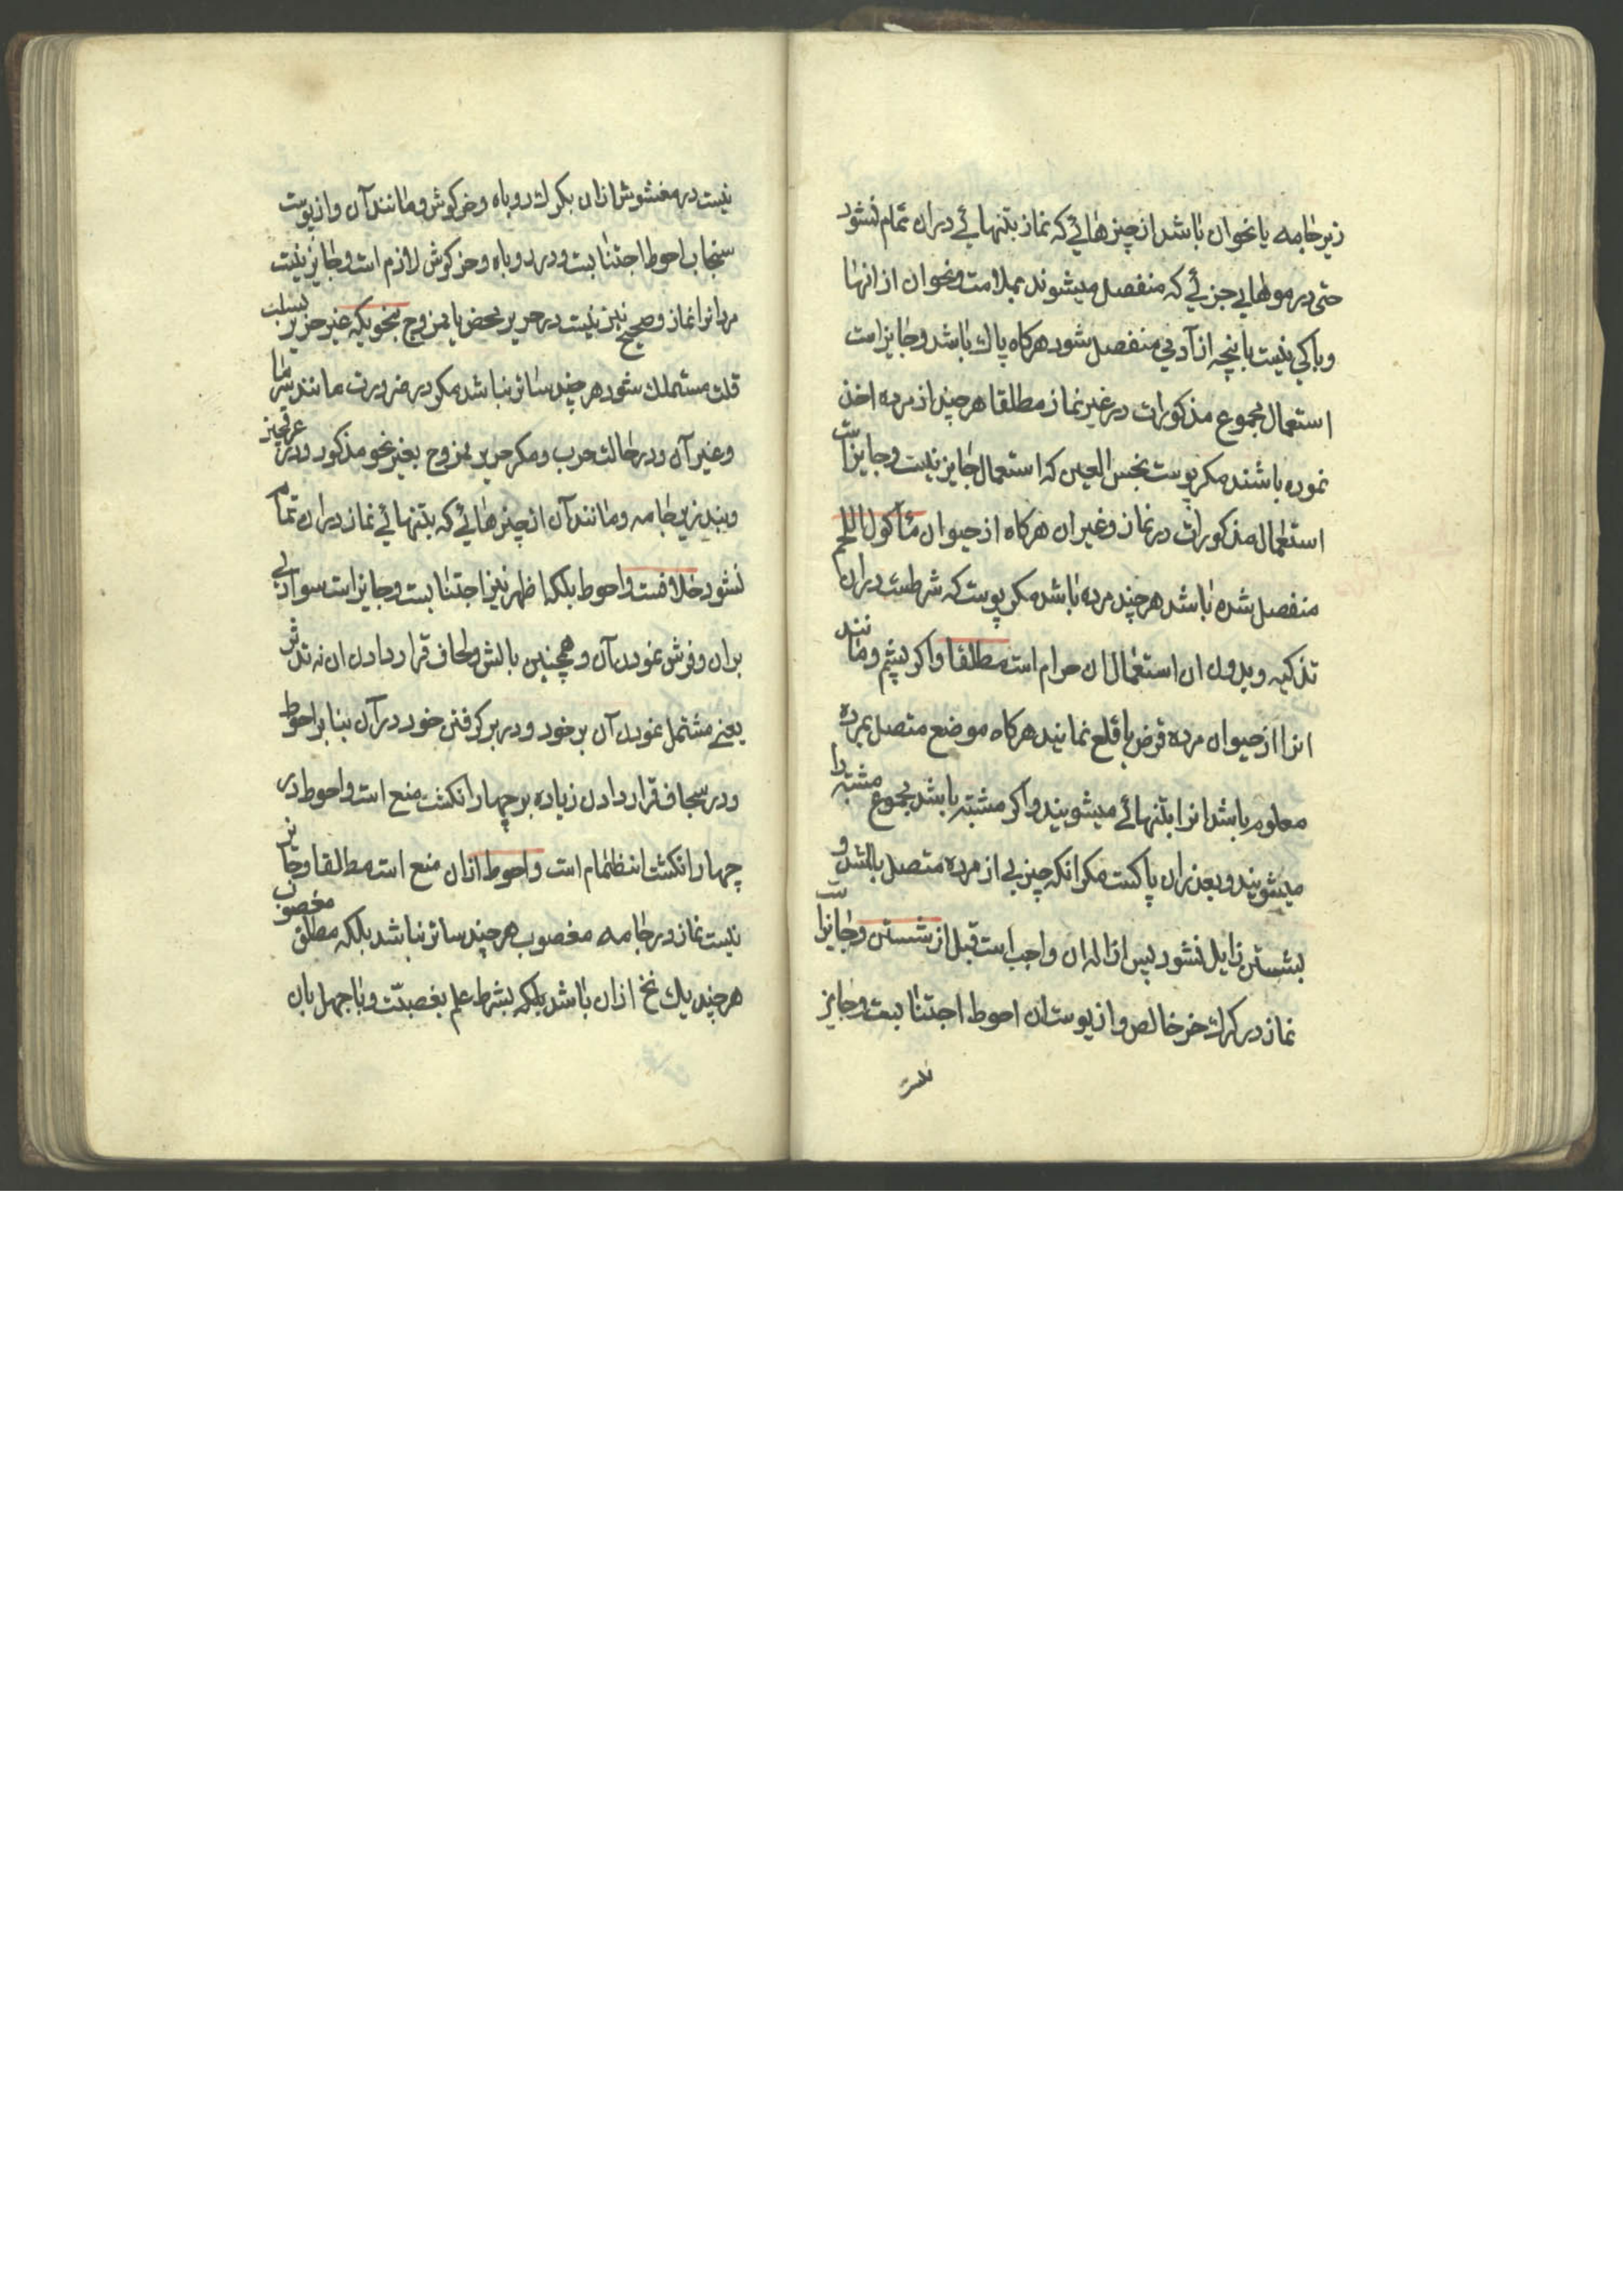 زیر جامه یا نحو ان باشد از چیزهائے که نماز بتنهائے دران تمام نشود
حتی در موهایی جزئے که منفصل میشوند بملامت و نحو ان از انها
و باکی نیست بانچه از آدمی منفصل شود هرکاه پاك باشد و جایز است
استعمال مجموع مذکورات در غیر نماز مطلقا هر چند از مرده اخذ
نموده باشند مکر پوست نجس العین که استعمال جایز نیست و جایز است
استعمال مذکورات در نماز و غیر ان هرکاه از حیوان مأکول اللحم
منفصل شده باشد هر چند مرده باشد مکر پوست که شرطست دران
تذکیه و بدون ان استعمال ان حرام است مطلقا و اکر پشم و مانند
انرا از حیوان مرده قرض یا قلع نمایند هرکاه موضع متصل بمرده
معلوم باشد انرا بتنهائے میشویند و اکر مشتبه باشد مجموع مشتبه را
میشویند و بعد از ان پاکست مکر انکه چیزیی از مرده متصل باشد و
بشستن زایل نشود پس ازاله ان واجب است قبل از شستن و جایز است
نماز در کرك خز خالص و از پوست ان احوط اجتنابست و جایز
نیست در مغشوش ازان بکرك روباه و خرکوش و مانند آن و از پوست
سنجاب احوط اجتنابست و در روباه و خرکوش لازم است و جایز نیست
مردانرا نماز و صحیح نیز نیست در حریر محض یا ممزوج بنحویکه غیر حریر بسبب
قلت مستهلك شود هر چند ساتر نباشد مکر در ضرورت مانند سرما
و غیر آن و در حالت حرب و مکر حریر ممزوج بغیر نحو مذکور و در عرقچین
و بند زیر جامه و مانند آن از چیزهائے که بتنهائے نماز دران تمام
نشود خلافست و احوط بلکه اظهر نیز اجتنابست و جایز است سواری
بران و فرش نمودن آن و همچنین بالش و لحاف قرار دادن ان نه تدثر
یعنے مشتمل نمودن آن بر خود و در بر کرفتن خود در آن بنا بر احوط
و در سجاف قرار دادن زیاده بر چهار انکشت منع است و احوط در
چهار انکشت انظمام است و احوط ازان منع است مطلقا و جایز
نیست نماز در جامه مغصوب هر چند ساتر نباشد بلکه مطلق مغصوب
هر چند یك نخ ازان باشد بلکه بشرط علم بغصبیّت و با جهل بان
نیست